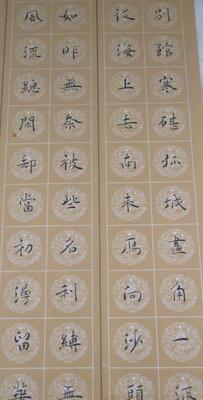 別館寒砧孤城畫角一派
從海上去南來鴈向沙頭
如昨無奈被些名利縛無
風流總閑却當初漫留華